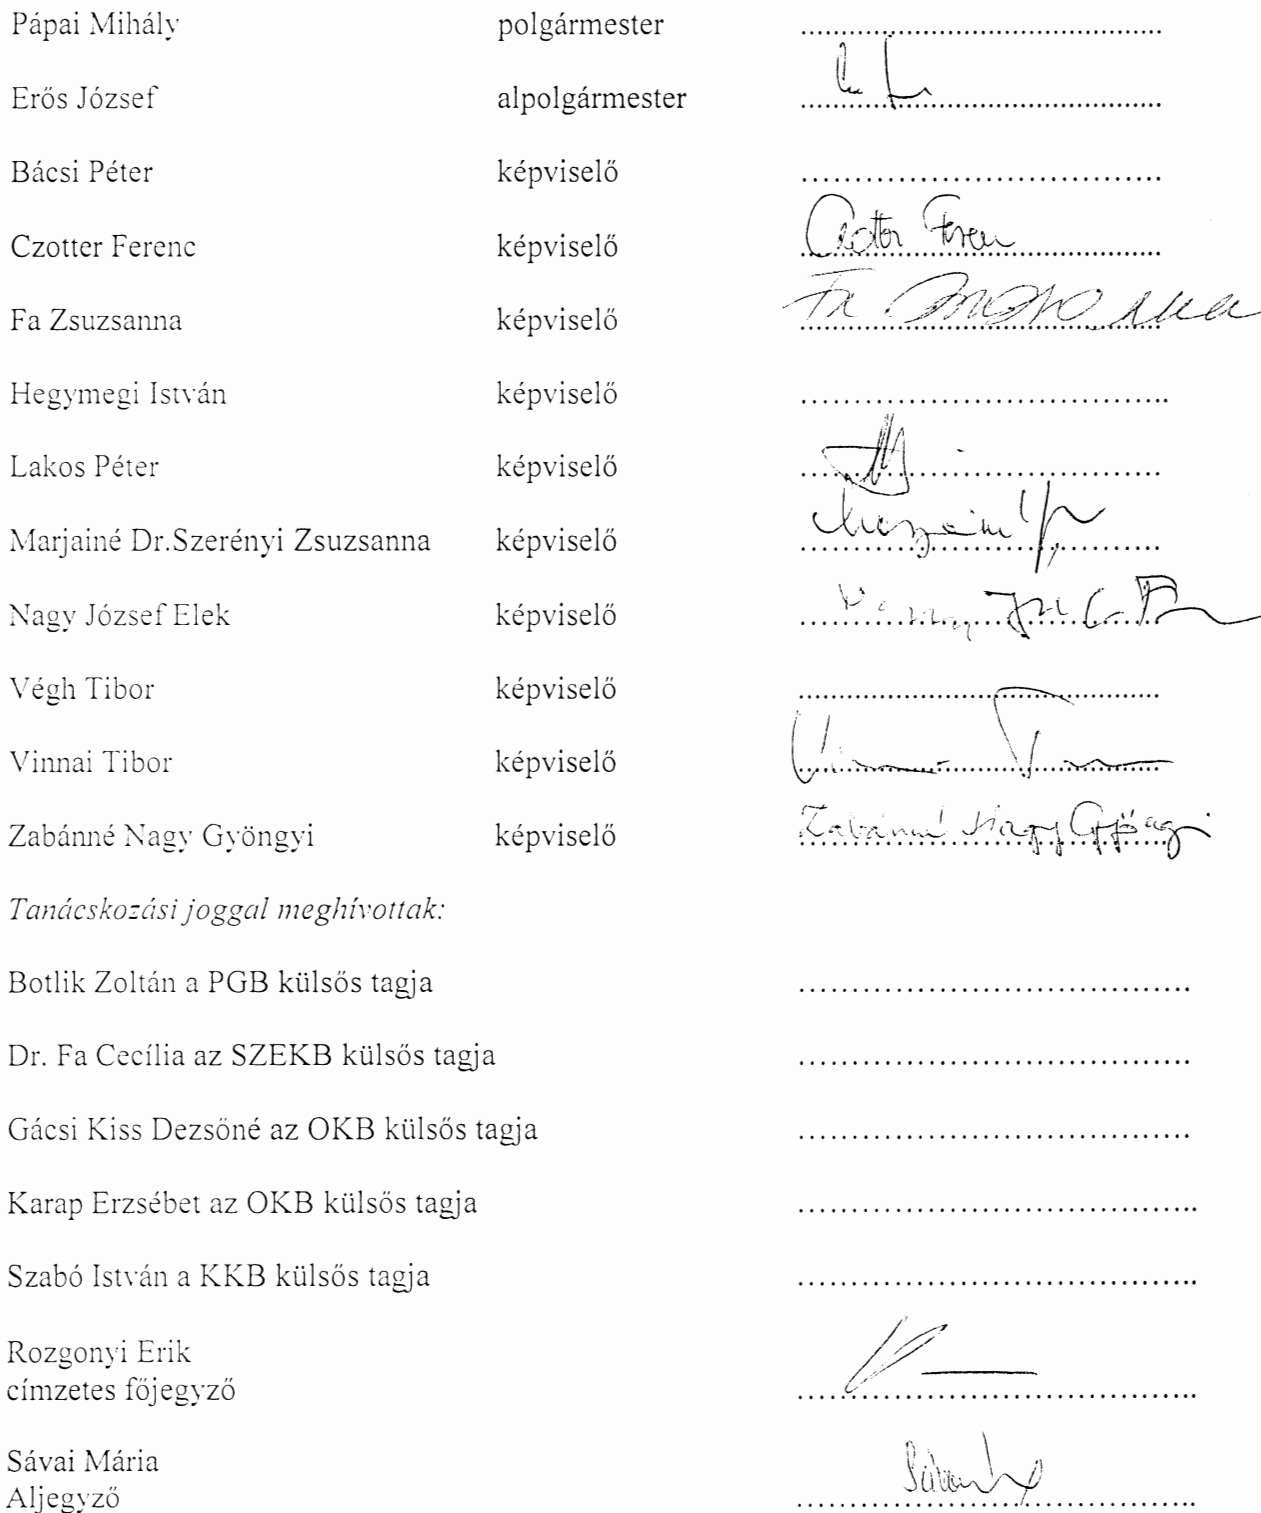 Pápai Mihály polgármester ........................................
Erős József alpolgármester ........................................
Bácsi Péter képviselő ........................................
Czotter Ferenc képviselő Czotter Ferenc
Fa Zsuzsanna képviselő Fa Zsuzsanna
Hegymegi István képviselő ........................................
Lakos Péter képviselő ........................................
Marjainé Dr.Szerényi Zsuzsanna képviselő ........................................
Nagy József Elek képviselő Nagy
Végh Tibor képviselő ........................................
Vinnai Tibor képviselő ........................................
Zabánné Nagy Gyöngyi képviselő Zabánné Nagy Gyöngyi
Tanácskozási joggal meghívottak:
Botlik Zoltán a PGB külsős tagja ........................................
Dr. Fa Cecília az SZEKB külsős tagja ........................................
Gácsi Kiss Dezsőné az OKB külsős tagja ........................................
Karap Erzsébet az OKB külsős tagja ........................................
Szabó István a KKB külsős tagja ........................................
Rozgonyi Erik
címzetes főjegyző ........................................
Sávai Mária
Aljegyző ........................................